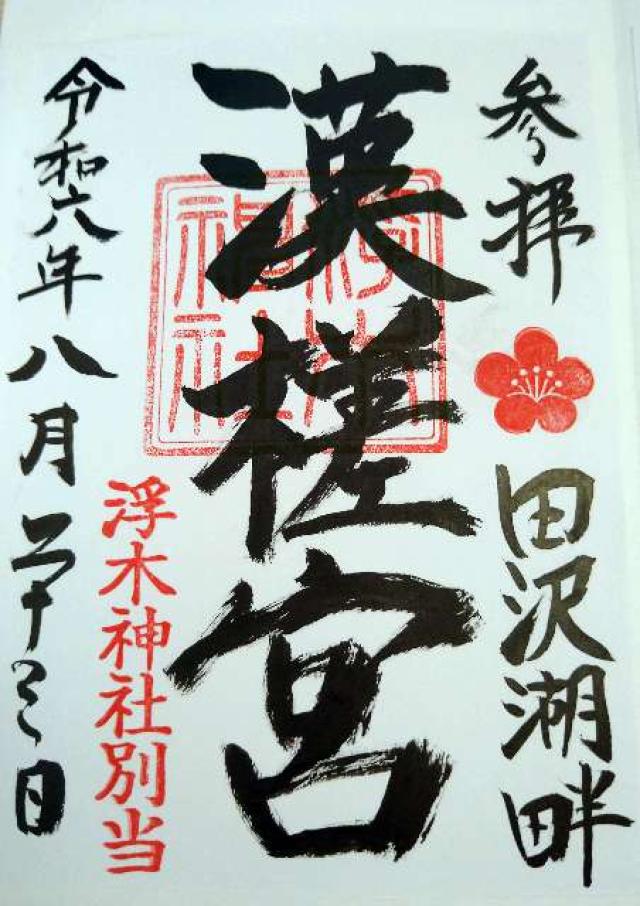 参拝
田沢湖畔
漢槎宮
浮木神社
浮木神社別当
令和六年八月二十三日